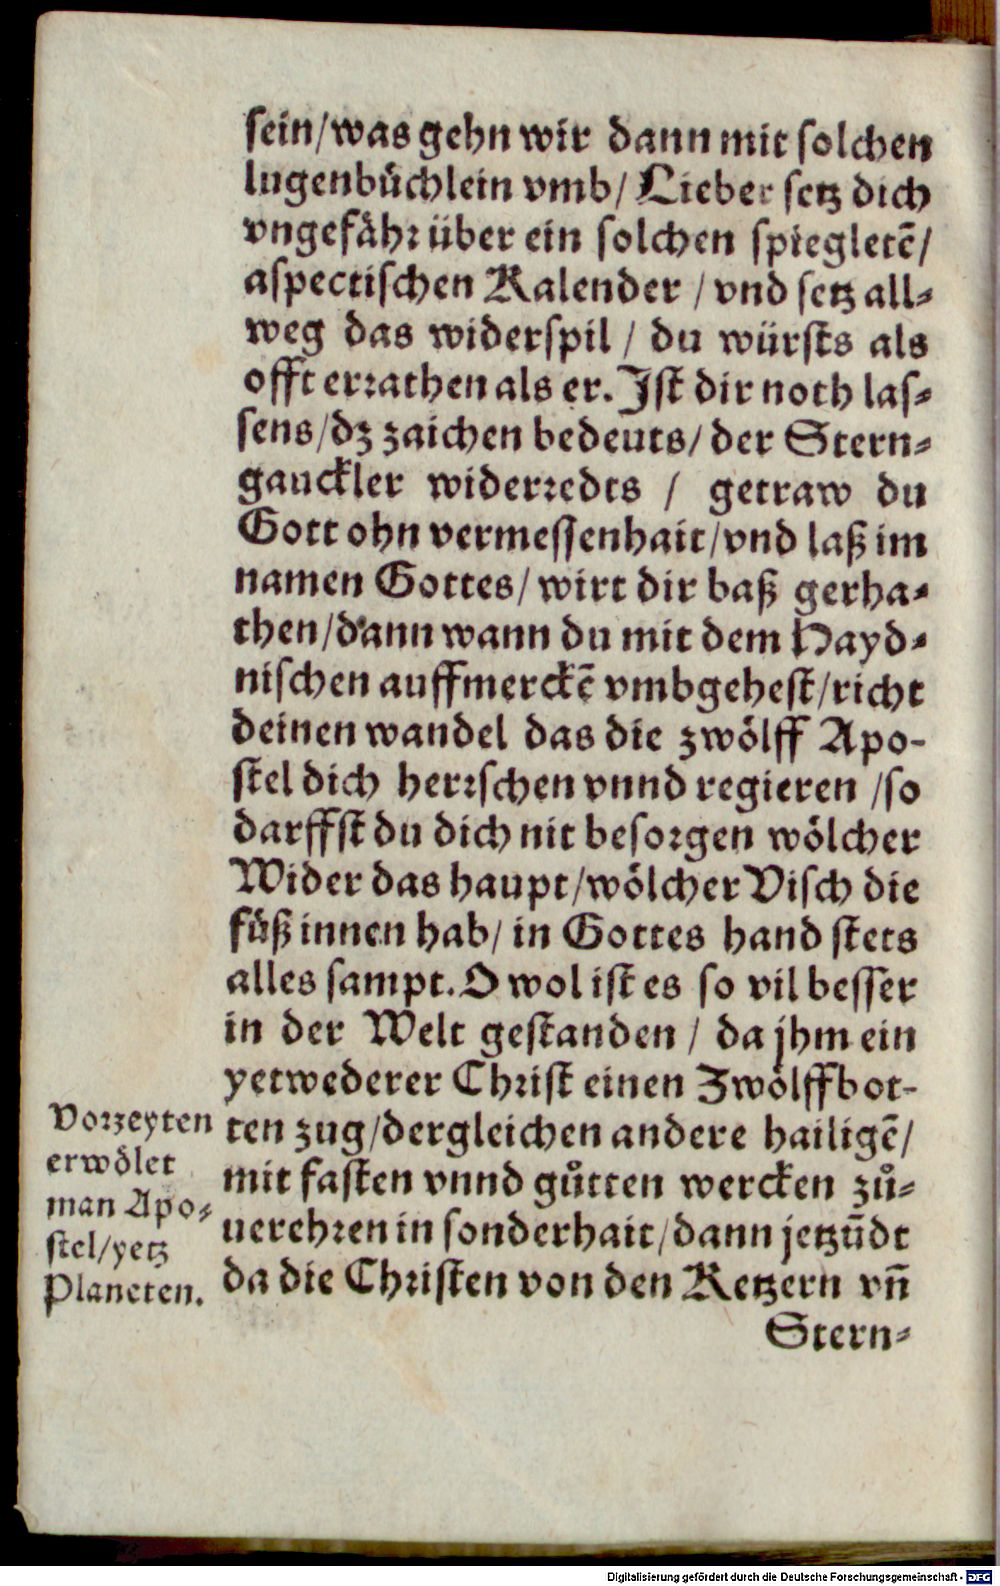 sein/was gehn wir dann mit solchen
lugenbüchlein vmb/ Lieber setz dich
vngefähr über ein solchen spiegletē/
aspectischen Kalender / vnd setz all⸗
weg das widerspil / du würsts als
offt errathen als er. Ist dir noth las⸗
sens/dz zaichen bedeuts/ der Stern⸗
gauckler widerredts / getraw du
Gott ohn vermessenhait/vnd laß im
namen Gottes/ wirt dir baß gerha⸗
then/dann wann du mit dem Hayd⸗
nischen auffmerckē vmbgehest/richt
deinen wandel das die zwölff Apo-
stel dich herrschen vnnd regieren /so
darffst du dich nit besorgen wölcher
Wider das haupt/wölcher Visch die
füß innen hab/ in Gottes hand stets
alles sampt. O wol ist es so vil besser
in der Welt gestanden / da jhm ein
yetwederer Christ einen Zwölffbot-
ten zug/dergleichen andere hailigē/
mit fasten vnnd gůtten wercken zů⸗
uerehren in sonderhait/dann jetzūdt
da die Christen von den Ketzern vn̄
Stern⸗
Vorzeyten
erwölet
man Apo⸗
stel/yetz
Planeten.
Digitalisierung gefördert durch die Deutsche Forschungsgemeinschaft - DFG